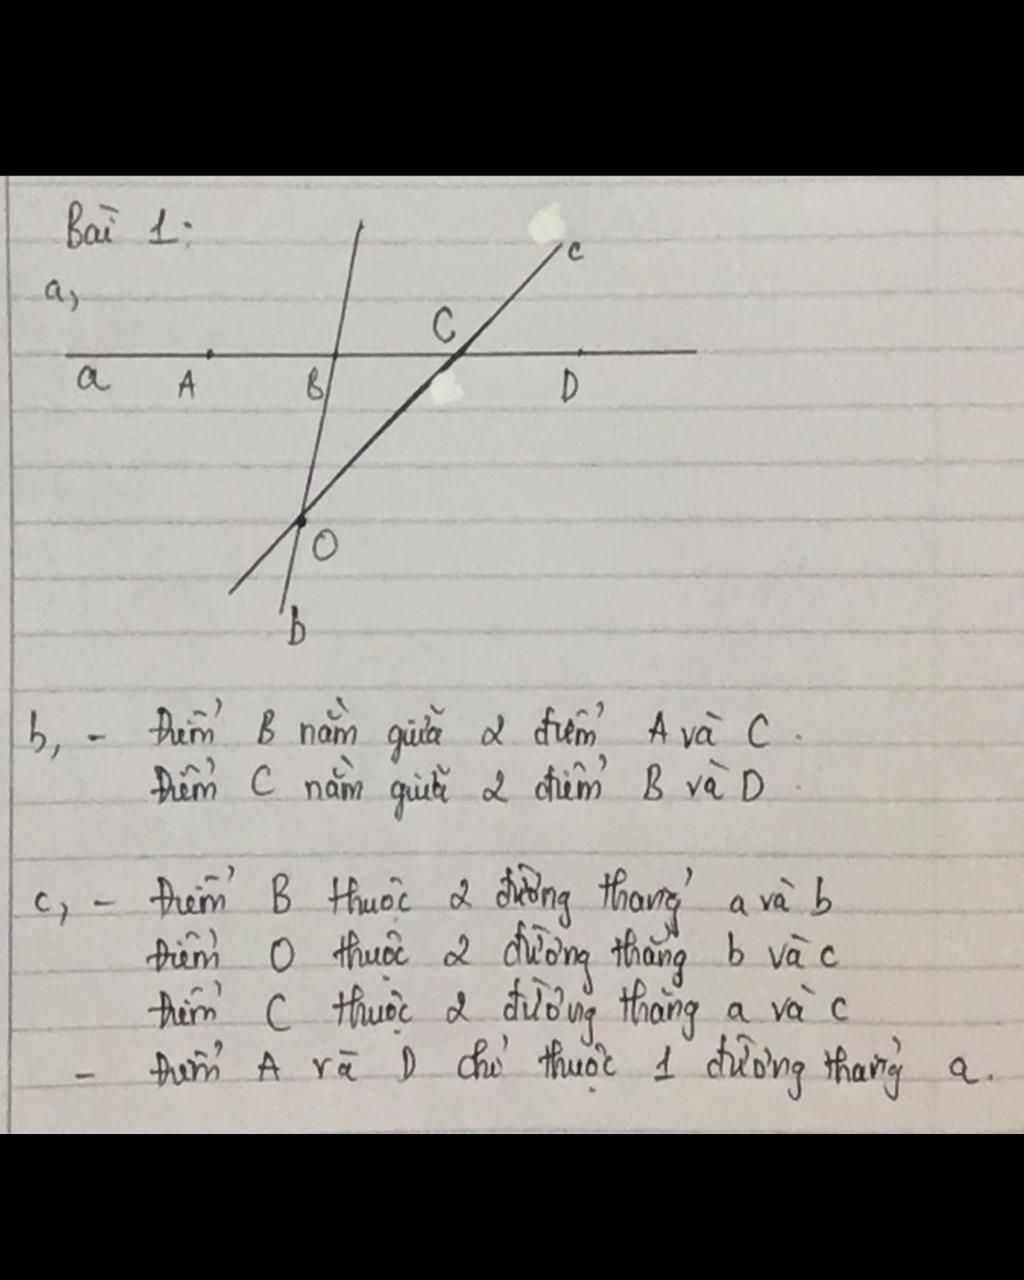 Bài 1:
a,
c
C
a A B D
O
b
b, - Điểm B nằm giữa 2 điểm A và C.
Điểm C nằm giữa 2 điểm B và D.
c, - Điểm B thuộc 2 đường thẳng a và b
Điểm O thuộc 2 đường thẳng b và c
Điểm C thuộc 2 đường thẳng a và c
- Điểm A và D chỉ thuộc 1 đường thẳng a.